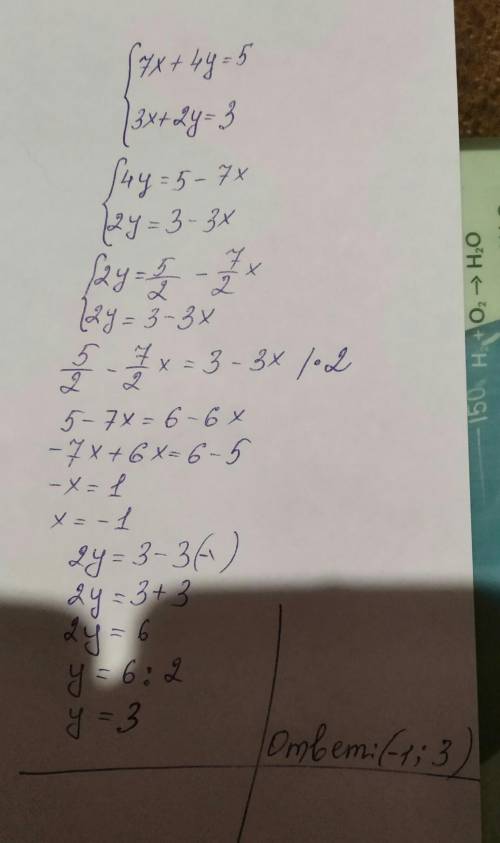 7x + 4y = 5
3x + 2y = 3
4y = 5 - 7x
2y = 3 - 3x
2y = 5/2 - 7/2 x
2y = 3 - 3x
5/2 - 7/2 x = 3 - 3x / · 2
5 - 7x = 6 - 6x
-7x + 6x = 6 - 5
-x = 1
x = -1
2y = 3 - 3(-1)
2y = 3 + 3
2y = 6
y = 6 : 2
y = 3
Ответ: (-1; 3)
150 H₂ + O₂ → H₂O